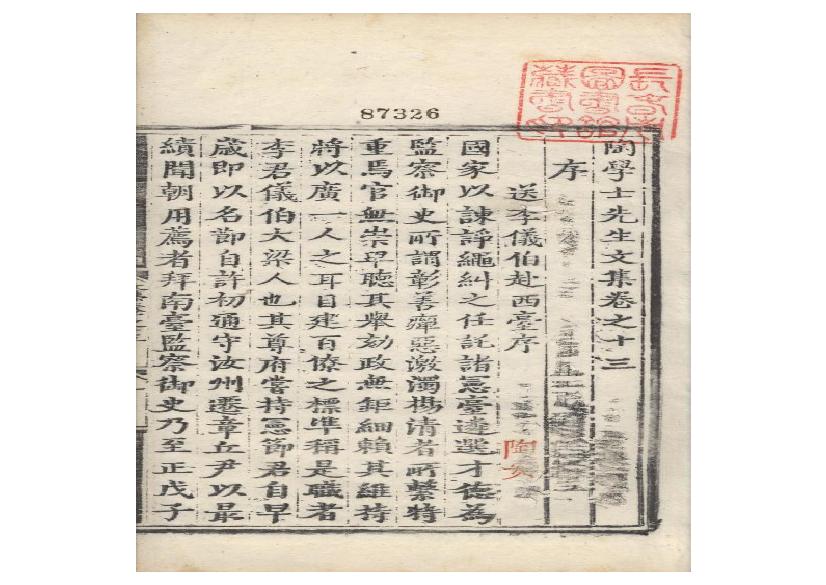 87326
陶學士先生文集卷之十三
序
送李儀伯赴西臺序
國家以諫諍繩糾之任託諸憲臺遴選才德為
監察御史所謂彰善癉惡激濁揚清者所繫特
重焉官無崇卑聽其舉劾政無鉅細賴其維持
將以廣一人之耳目建百僚之標準稱是職者
李君儀伯大梁人也其尊府嘗持憲節君自早
歲即以名節自許初通守汝州遷章丘尹以最
績聞朝用薦者拜南臺監察御史乃至正戊子